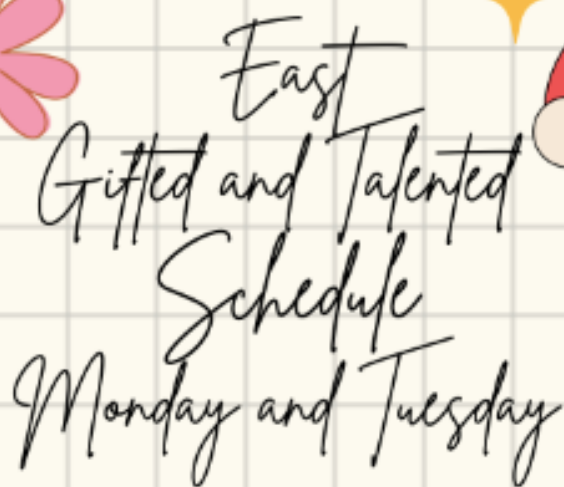 East
Gifted and Talented
Schedule
Monday and Tuesday